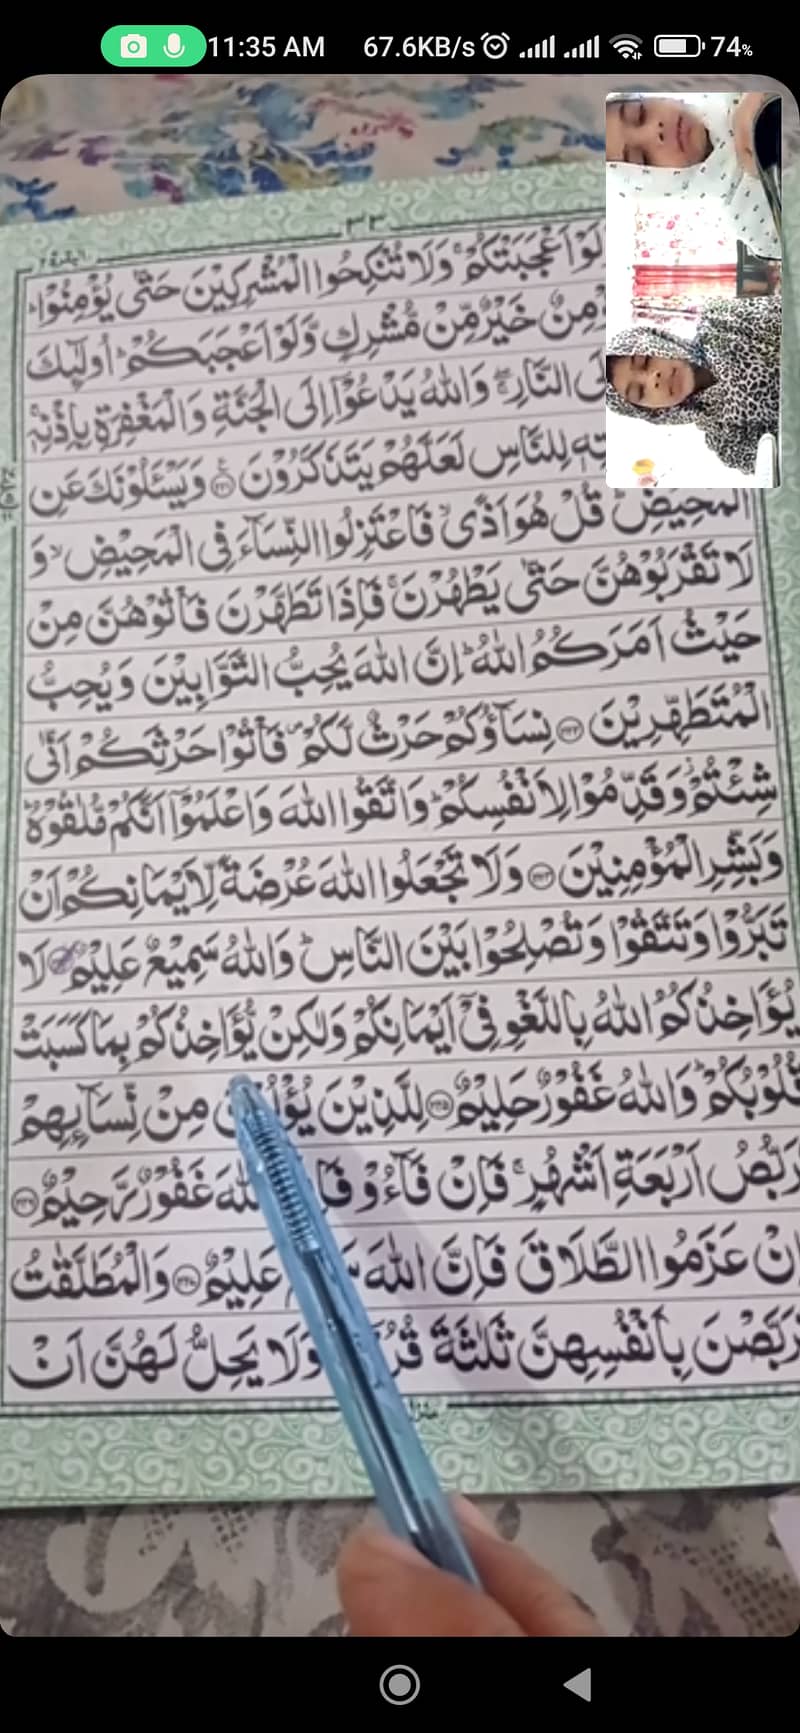 11:35 AM 67.6KB/s 74%
٣٣
لَوْ اَعْجَبَتْكُمْ ۚ وَلَا تُنْكِحُوا الْمُشْرِكِيْنَ حَتّٰى يُؤْمِنُوْا ؕ
مِنٌ خَيْرٌ مِّنْ مُّشْرِكٍ وَّلَوْ اَعْجَبَكُمْ ؕ اُولٰٓئِكَ
لَى النَّارِ ۖۚ وَاللّٰهُ يَدْعُوْٓا اِلَى الْجَنَّةِ وَالْمَغْفِرَةِ بِاِذْنِهٖ ۚ
تِهٖ لِلنَّاسِ لَعَلَّهُمْ يَتَذَكَّرُوْنَ ۝ وَيَسْـَٔلُوْنَكَ عَنِ
الْمَحِيْضِ ؕ قُلْ هُوَ اَذًى ۙ فَاعْتَزِلُوا النِّسَآءَ فِى الْمَحِيْضِ ۙ وَ
لَا تَقْرَبُوْهُنَّ حَتّٰى يَطْهُرْنَ ۚ فَاِذَا تَطَهَّرْنَ فَاْتُوْهُنَّ مِنْ
حَيْثُ اَمَرَكُمُ اللّٰهُ ؕ اِنَّ اللّٰهَ يُحِبُّ التَّوَّابِيْنَ وَيُحِبُّ
الْمُتَطَهِّرِيْنَ ۝٢٢٢ نِسَآؤُكُمْ حَرْثٌ لَّكُمْ ۪ فَاْتُوْا حَرْثَكُمْ اَنّٰى
شِئْتُمْ ؗ وَقَدِّمُوْا لِاَنْفُسِكُمْ ؕ وَاتَّقُوا اللّٰهَ وَاعْلَمُوْٓا اَنَّكُمْ مُّلٰقُوْهُ ؕ
وَبَشِّرِ الْمُؤْمِنِيْنَ ۝٢٢٣ وَلَا تَجْعَلُوا اللّٰهَ عُرْضَةً لِّاَيْمَانِكُمْ اَنْ
تَبَرُّوْا وَتَتَّقُوْا وَتُصْلِحُوْا بَيْنَ النَّاسِ ؕ وَاللّٰهُ سَمِيْعٌ عَلِيْمٌ ۝ لَا
يُؤَاخِذُكُمُ اللّٰهُ بِاللَّغْوِ فِىْٓ اَيْمَانِكُمْ وَلٰكِنْ يُّؤَاخِذُكُمْ بِمَا كَسَبَتْ
قُلُوْبُكُمْ ؕ وَاللّٰهُ غَفُوْرٌ حَلِيْمٌ ۝٢٢٥ لِلَّذِيْنَ مِنْ نِّسَآئِهِمْ
رَبُّصُ اَرْبَعَةِ اَشْهُرٍ ۚ فَاِنْ فَآءُوْ اللّٰهَ غَفُوْرٌ رَّحِيْمٌ ۝٢٢٦
اِنْ عَزَمُوا الطَّلَاقَ فَاِنَّ اللّٰهَ عَلِيْمٌ ۝٢٢٧ وَالْمُطَلَّقٰتُ
رَبَّصْنَ بِاَنْفُسِهِنَّ ثَلٰثَةَ وَلَا يَحِلُّ لَهُنَّ اَنْ